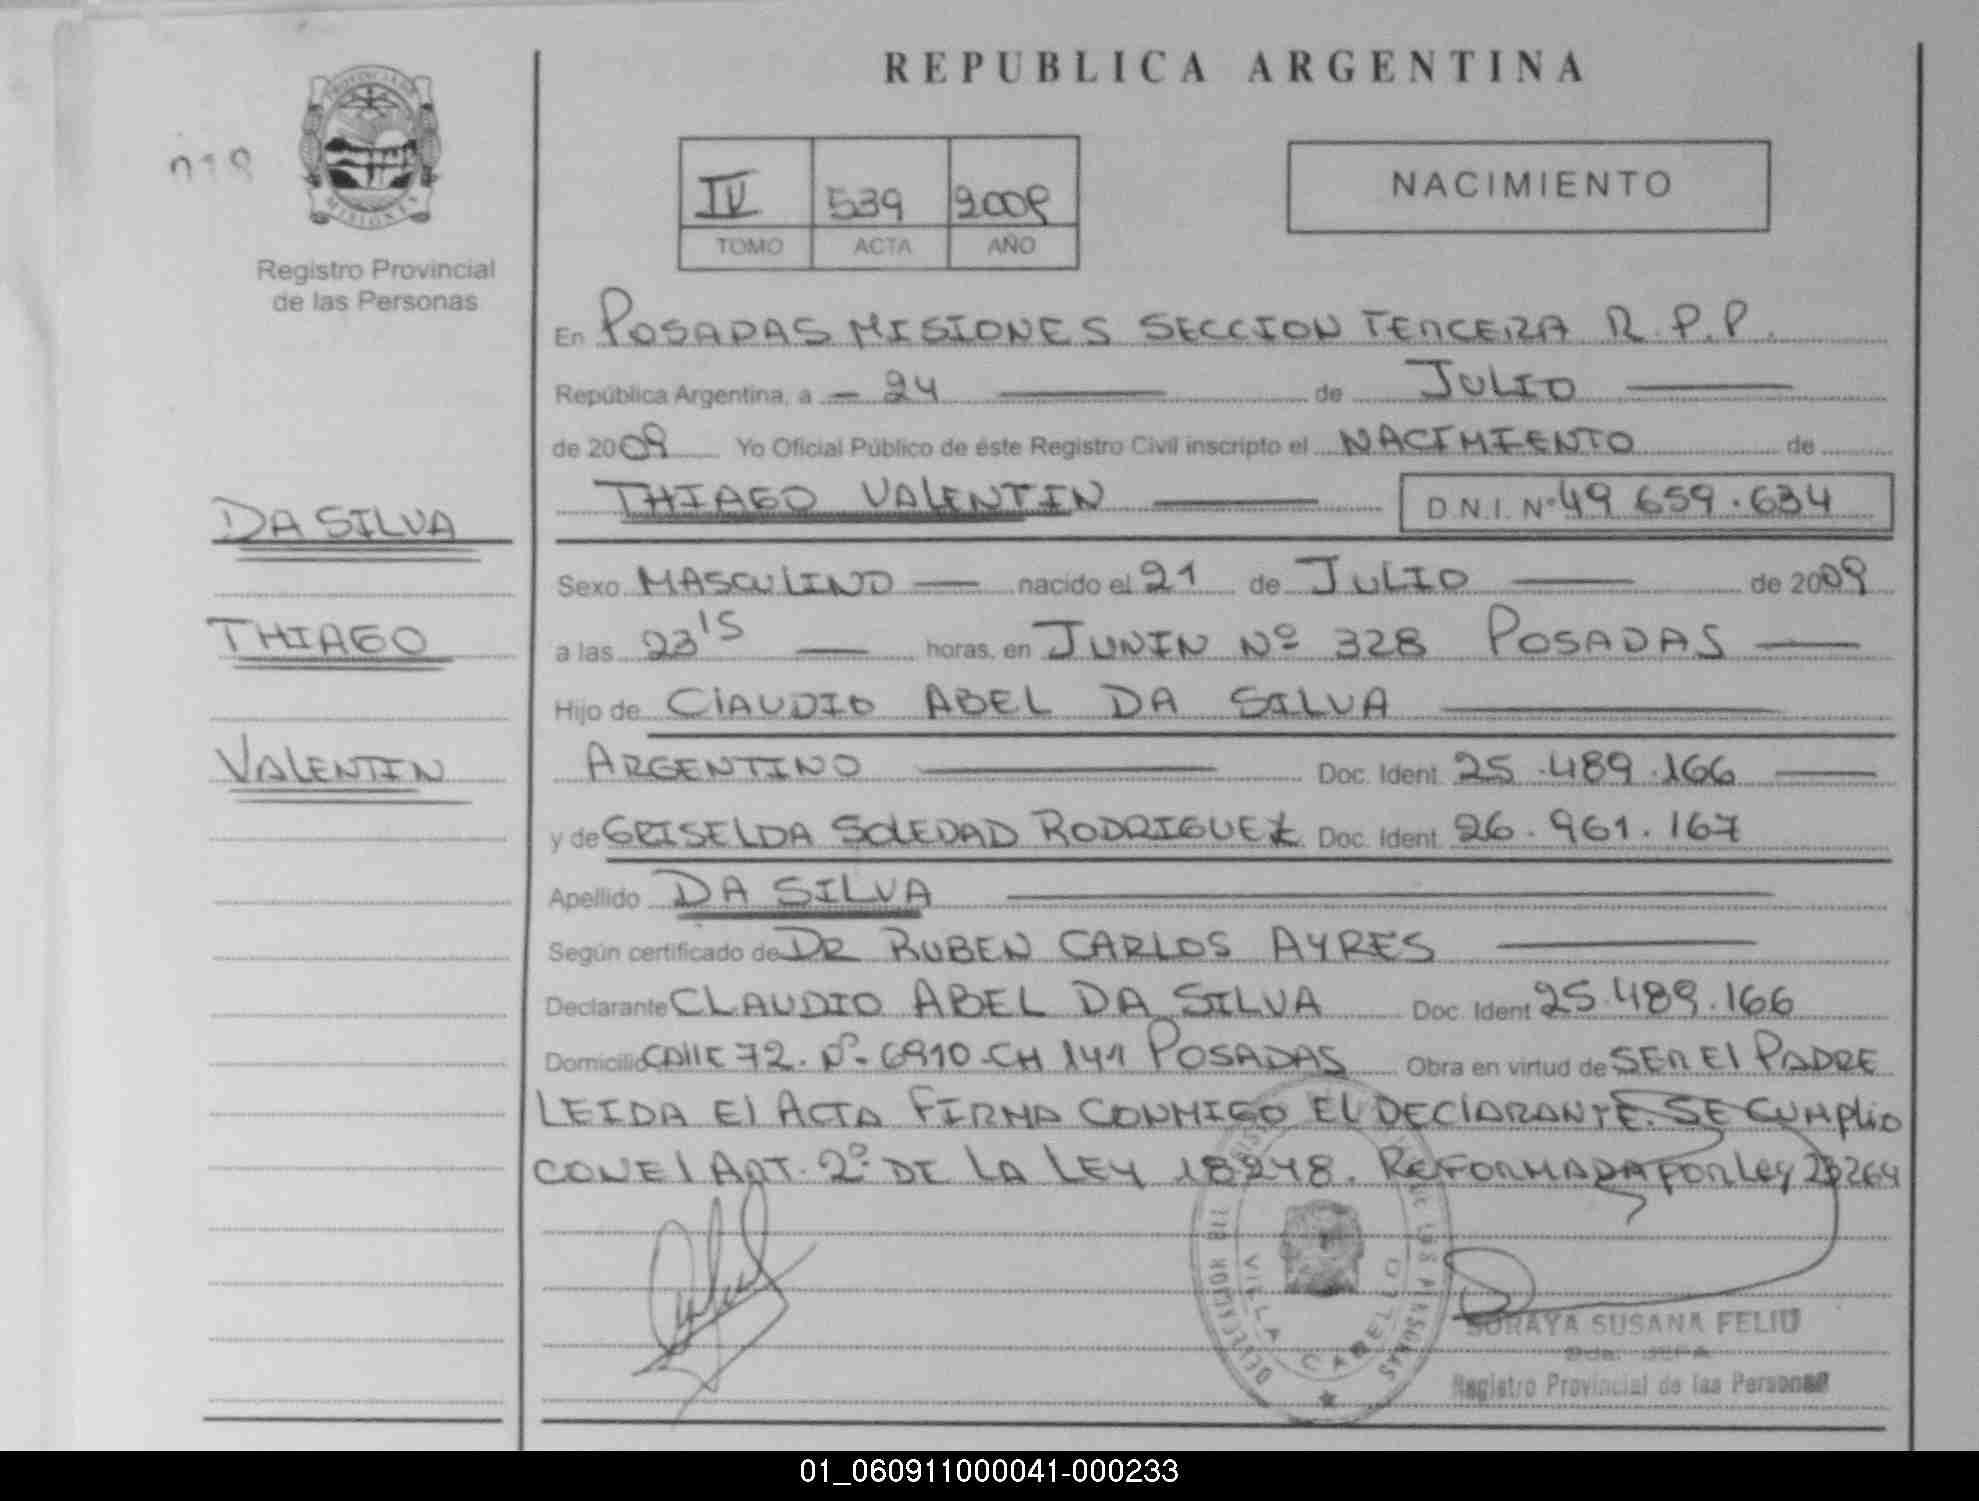 REPUBLICA ARGENTINA
PROVINCIA DE
MISIONES
018
Registro Provincial
de las Personas
IV 539 2009
TOMO ACTA AÑO
NACIMIENTO
En POSADAS MISIONES SECCION TERCERA R.P.P.
República Argentina, a - 24 de JULIO
de 2009 Yo Oficial Público de éste Registro Civil inscripto el NACIMIENTO de
THIAGO VALENTIN D.N.I. Nº 49 659.634
DA SILVA
THIAGO
VALENTIN
Sexo MASCULINO nacido el 21 de JULIO de 2009
a las 23 15 horas, en JUNIN Nº 328 POSADAS
Hijo de ClAUDIO ABEL DA SILVA
ARGENTINO Doc. Ident. 25.489.166
y de GRISELDA SOLEDAD RODRIGUEZ Doc. Ident. 26.961.167
Apellido DA SILVA
Según certificado de DR RUBEN CARLOS AYRES
Declarante CLAUDIO ABEL DA SILVA Doc. Ident 25.489.166
Domicilio CAllE 72. Nº 6910-CH 141 POSADAS Obra en virtud de SER El PADRE
LEIDA El ACTA FIRMA CONMIGO EL DEClARANTE. SE CUMPliO
CON El ART. 2º DE LA LEY 18248. REFORMADA POR Ley 23264
VILLA CABELLO
SORAYA SUSANA FELIU
JEFA
Registro Provincial de las Personas
01_060911000041-000233